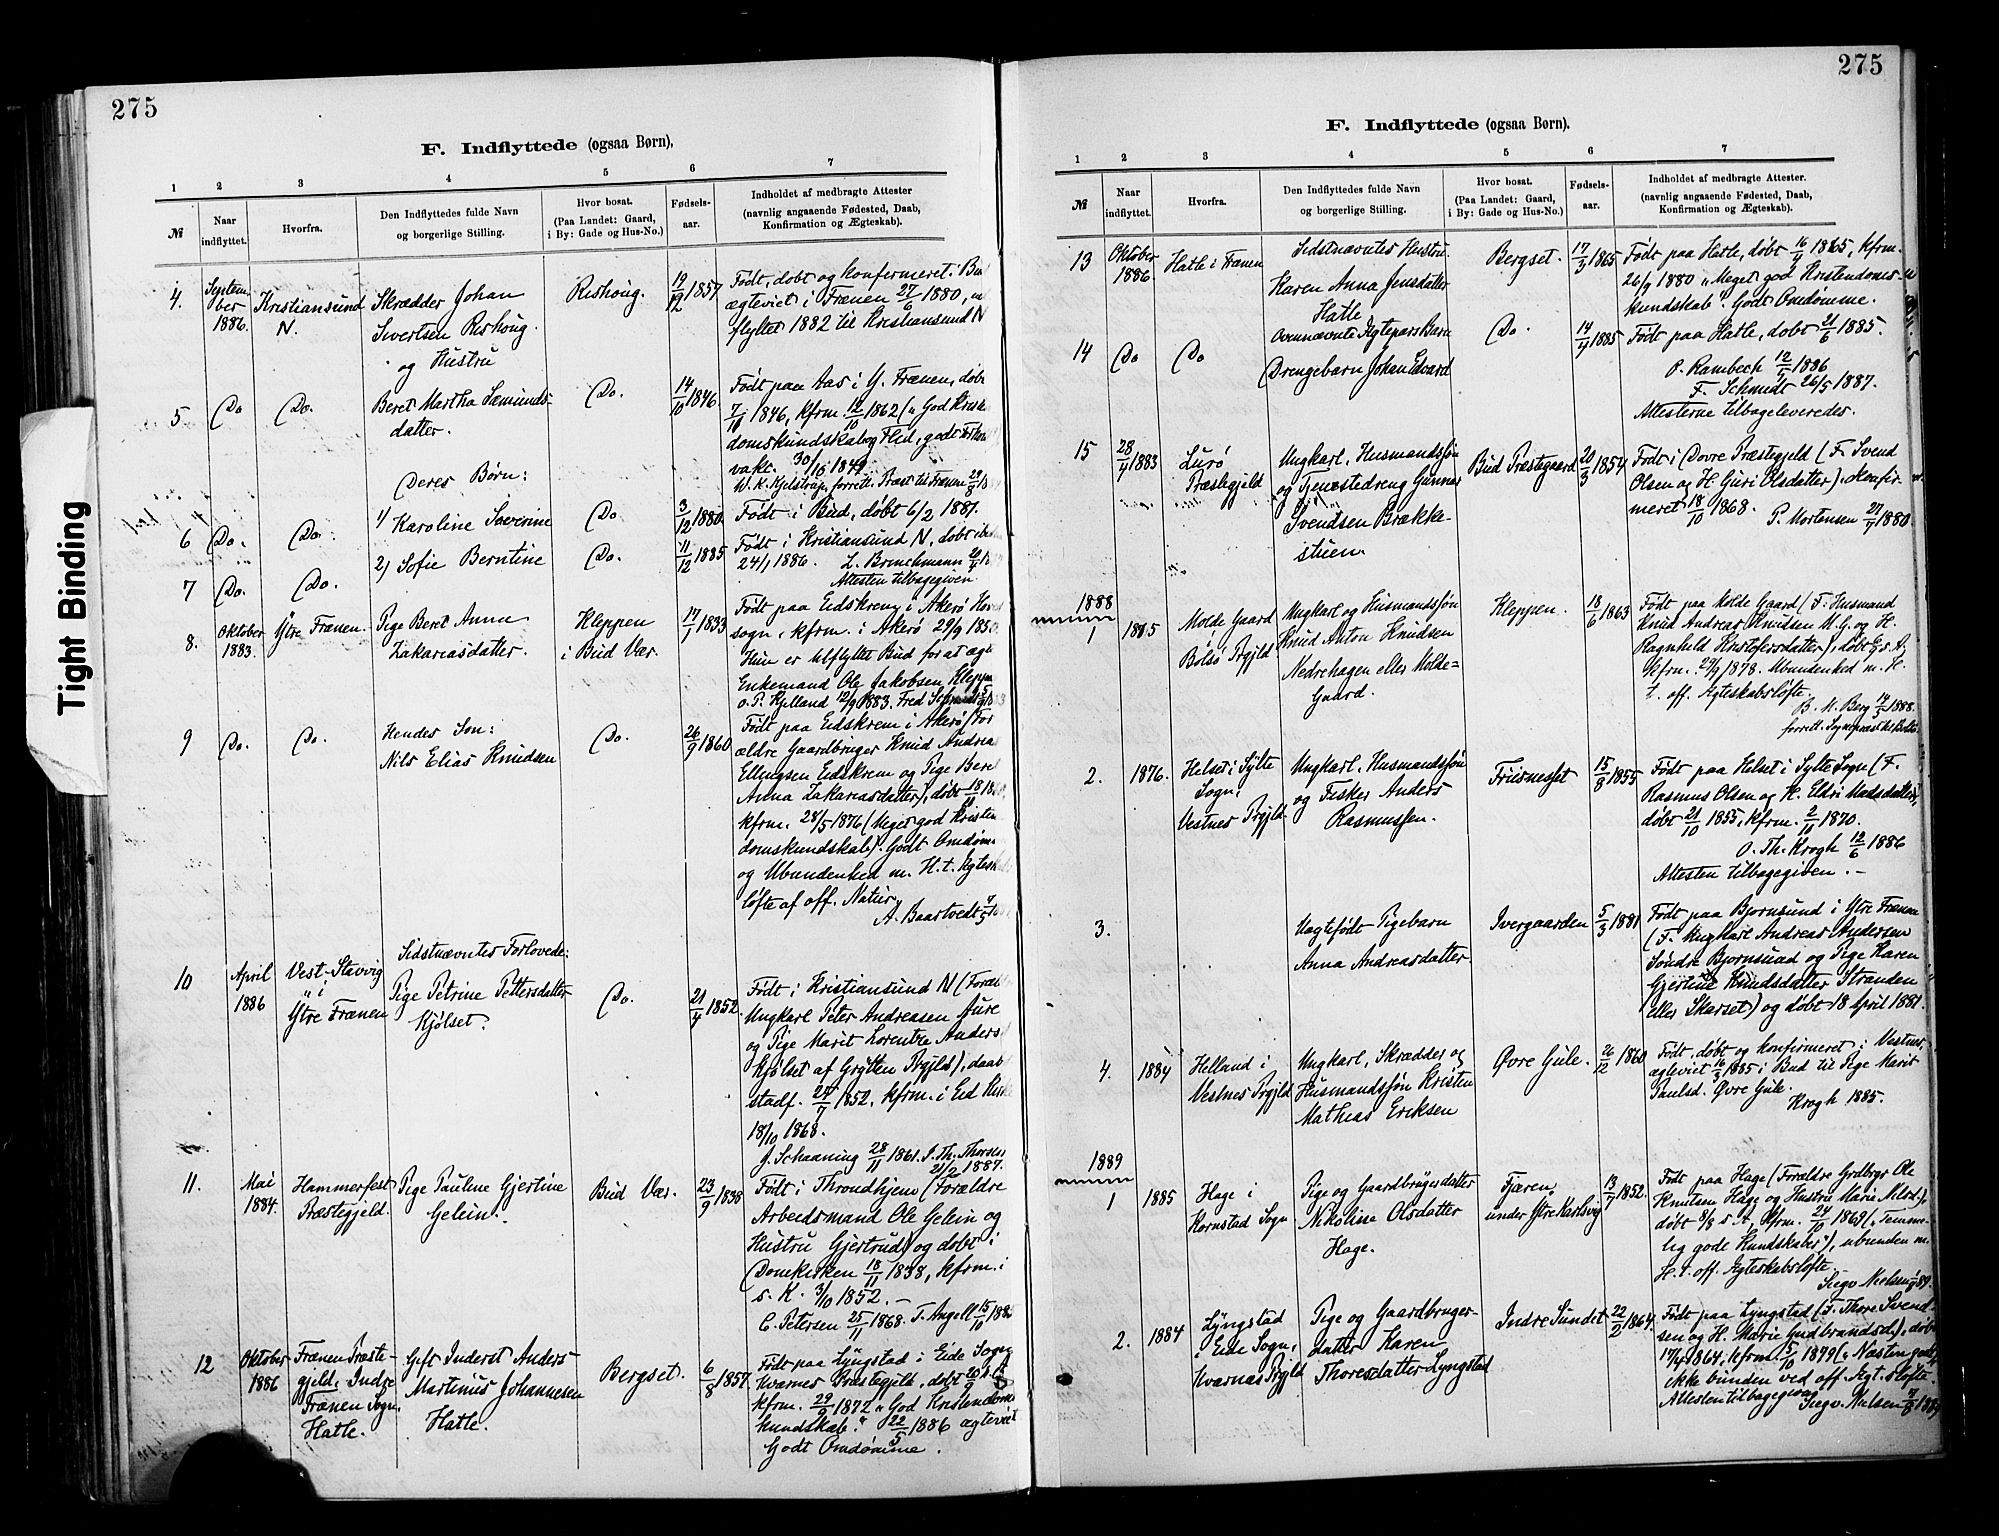 275
F. Indflyttede (ogsaa Børn),
1 2 3 4 5 6 7
№
Naar indflyttet.
Hvorfra.
Den Indflyttedes fulde Navn og borgerlige Stilling.
Hvor bosat. (Paa Landet: Gaard, i By: Gade og Hus-No.)
Fødsels-aar.
Indholdet af medbragte Attester (navnlig angaaende Fødested, Daab, Konfirmation og Ægteskab).
4. September 1886.
Kristiansund N.
Skrædder Johan
Sivertsen Rishoug.
og Hustru
Rishoug.
19/12 1857
Født, døbt og konfermeret i Bud
ægteviet i Frænen 27/6 1880,
flyttet 1882 til Kristiansund N
5 Do Do.
Beret Martha Sæmunds-
datter.
Do.
14/10 1846
Født paa Aas i Y. Frænen, døbt
7/11 1846, kfrm. 12/10 1862 („God Krist
domskundskab og Flid, godt Forhold
vakc. 30/10 1849
W. K. Hjelstrup, forrett. Præst til Frænen
Deres Børn:
6 Do. Do.
1) Karoline Severine
Do
3/12 1880
Født i Bud, døbt 6/2 1881.
7 Do. Do.
2) Sofie Berntine
Do.
11/12 1885
Født i Kristiansund N, døbt
24/1 1886. L. Brinchmann
Attesten tilbagegiven
8. Oktober 1883.
Ytre Frænen.
Pige Beret Anna
Zakariasdatter.
Kleppen
i Bud Vær.
17/1 1833
Født paa Eidskrem i Akerø Hoved
sogn, kfrm. i Akerø 29/9 1850.
Hun er tilflyttet Bud for at ægte
Enkemand Ole Jakobsen Kleppen
o. P. Kjelland 12/9 1883. Fred Schmidt
9 Do. Do.
Hendes Søn:
Nils Elias Knudsen
Do.
26/9 1860
Født paa Eidskrem i Akerø (For
ældre Gaardbruger Knud Andreas
Ellingsen Eidskrem og Pige Beret
Anna Zakariasdatter), døbt
kfrm. 28/5 1876 (Meget god Kristen
domskundskab). Godt Omdømme
og Ubundenhed m. H. t. Ægteskabs
løfte af off. Natur.
A. Baartvedt
10 April 1886
Vest-Stavvig
i
Ytre Frænen
Sidstnævntes Forlovede:
Pige Petrine Pettersdatter
Hjølset.
Do.
21/4 1852.
Født i Kristiansund N (Foræl
Ungkarl Peter Andreasen Aure
og Pige Marit Lorentze Anders
Hjølset af Grytten Prgjld), daab
stadf. 27/7 1852, kfrm. i Eid Kirke
18/10 1868.
J. Schaaning 28/11 1861. J. Th. Thorsen
21/2 1887.
11. Mai 1884.
Hammerfest
Præstegjeld.
Pige Pauline Gjertine
Gelein.
Bud Vær.
23/9 1838
Født i Throndhjem (Forældre
Arbeidsmand Ole Gelein og
Hustru Gjertrud) og døbt i
Domkirken 18/11 1838, kfrm. i
s. K. 3/10 1852.
C. Petersen 25/11 1868. T. Angell 15/10
12 Oktober 1886
Frænen Præste-
gjeld, Indre
Frænen Sogn,
Hatle.
Gift Inderst Anders
Martinus Johannesen
Hatle.
Bergset.
6/8 1857
Født paa Lyngstad i Eide Sogn
Kværnes Præstegjeld, døbt 20/9 s. A.
kfrm. 29/9 1872 „God Kristendoms
kundskab." 22/5 1886 ægteviet
Godt Omdømme.
Tight Binding
275
F. Indflyttede (ogsaa Børn).
1 2 3 4 5 6 7
№
Naar indflyttet.
Hvorfra.
Den Indflyttedes fulde Navn og borgerlige Stilling.
Hvor bosat. (Paa Landet: Gaard, i By: Gade og Hus-No.)
Fødsels-aar.
Indholdet af medbragte Attester. (navnlig angaaende Fødested, Daab, Konfirmation og Ægteskab).
13 Oktober 1886
Hatle i Frænen
Sidstnævntes Hustru
Karen Anna Jensdatter
Hatle
Bergset.
17/3 1865
Født paa Hatle, døbt 16/4 1865, kfrm.
26/9 1880 „Meget god Kristendoms-
kundskab". Godt Omdømme.
14 Do Do
Ovennævnte Ægtepars Barn
Drengebarn Johan Edvard
Do.
14/4 1885
Født paa Hatle, døbt 21/6 1885.
O. Rambech 12/5 1886
F. Schmidt 26/5 1887.
Attesterne tilbageleveredes.
15 28/4 1883
Lurø
Præstegjeld
Ungkarl, Husmandssøn
og Tjenestedreng Gunnar
Svendsen Brække-
stuen.
Bud Præstegaard
20/3 1854
Født i Dovre Præstegjeld (F. Svend
Olsen og H. Guri Olsdatter). Konfir
meret 18/10 1868. P. Mortensen 27/9 1880
1888
1 1885
Molde Gaard
i
Bolsø Prgjld
Ungkarl og Husmandssøn
Knud Anton Knudsen
Nedrehagen eller Molde-
Gaard.
Kleppen.
18/6 1863
Født paa Molde Gaard (F. Husmand
Knud Andreas Knudsen M. G. og H.
Ragnhild Kristofersdatter), døbt s. A.
kfrm. 27/9 1878. Ubundenhed m. H.
t. off. Ægteskabsløfte.
B. M. Berg 14/5 1888.
forrett. Sognepræst til Bolsø.
2. 1876.
Helset i Sylte
Sogn,
Vestnes Prgjld
Ungkarl, Husmandssøn
og Fisker Anders
Rasmussen.
Friisneset
15/8 1855
Født paa Helset i Sylte Sogn (F.
Rasmus Olsen og H. Eldri Madsdatter),
døbt 21/10 1855, kfrm. 2/11 1870.
O. Th. Krogh 12/6 1886
Attesten tilbagegiven. -
3.
Uægtefødt Pigebarn
Anna Andreasdatter.
Ivergaarden
5/3 1881
Født paa Bjørnsund i Ytre Frænen
(F. Ungkarl Andreas Andersen
Søndre Bjørnsund og Pige Karen
Gjertine Knudsdatter Stranden
eller Skarset) og døbt 18 April 1881.
4. 1884
Helland i
Vestnes Prgjld
Ungkarl, Skrædder og
Husmandssøn Kristen
Mathias Eriksen
Øvre Gule.
26/12 1860
Født, døbt og konfirmeret i Vestnes,
ægteviet 16/3 1885 i Bud til Pige Marit
Paulsd. Øvre Gule.
Krogh 1885.
1889
1 1885
Hage i
Kornstad Sogn
Pige og Gaardbrugerdatter
Nikoline Olsdatter
Hage.
Fjæren
under Ytre Karlsvig
13/7 1852.
Født paa Hage (Forældre Grdbrgr Ole
Knutsen Hage og Hustru Marie Nilsd.),
døbt 8/8 s. A, kfrm. 24/10 1869 („Temme-
lig gode Kundskaber"), ubunden m.
H. t. off. Ægteskabsløfte.
Segv Nielsen
2. 1884
Lyngstad
i Eide Sogn,
Kværnæs Prgjld
Pige og Gaardbruger-
datter Karen
Thoresdatter Lyngstad
Indre Sundet
22/2 1864
Født paa Lyngstad (F. Thore Svend-
sen og H. Marie Gudbrandsd.), døbt
17/4 1864, kfrm. 5/10 1879 („Næsten godt),
ikke bunden ved off. Ægt.sløfte.
Attesten tilbagegiven Segv. Nielsen